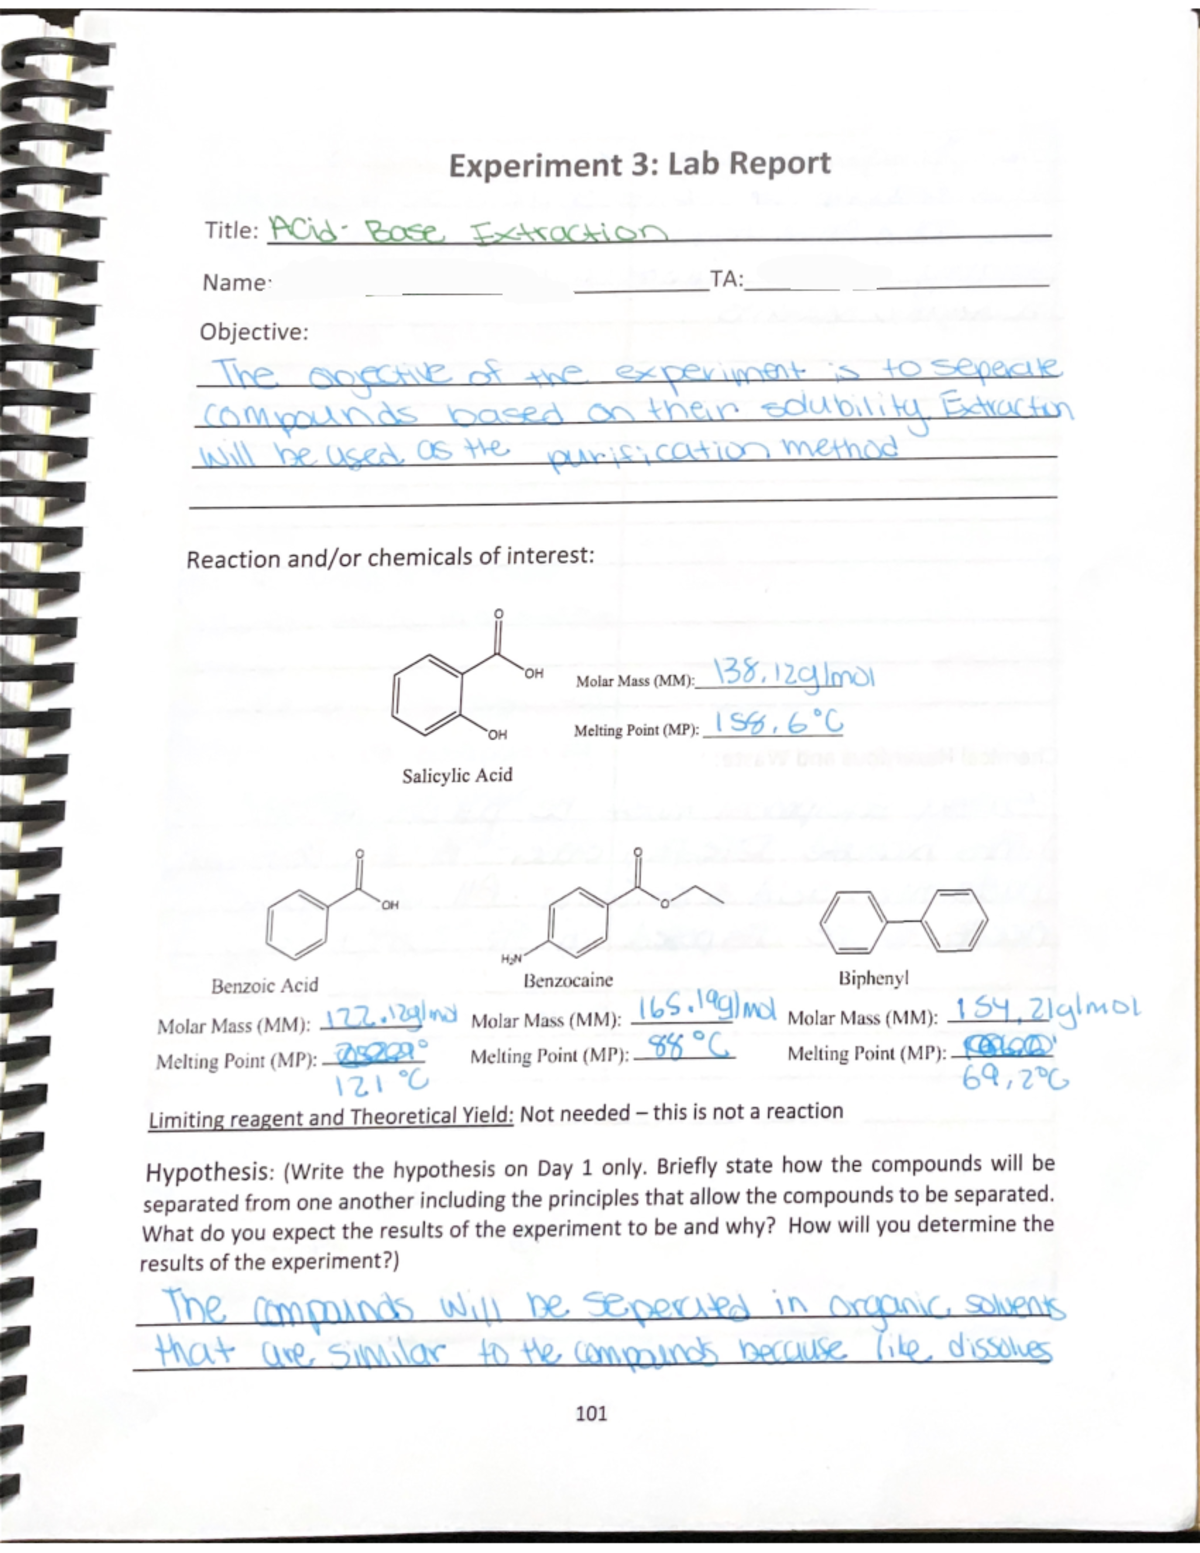 Experiment 3: Lab Report
Title: Acid-Base Extraction
Name: TA:
Objective:
The objective of the experiment is to seperate
compounds based on their solubility. Extraction
will be used as the purification method
Reaction and/or chemicals of interest:
O
OH
OH
Molar Mass (MM): 138.12g/mol
Melting Point (MP): 158.6°C
Salicylic Acid
O
OH
O
O
H₂N
Benzoic Acid Benzocaine Biphenyl
Molar Mass (MM): 122.12g/mol Molar Mass (MM): 165.19g/mol Molar Mass (MM): 154.21g/mol
Melting Point (MP): Melting Point (MP): 88°C Melting Point (MP):
121°C 69.2°C
Limiting reagent and Theoretical Yield: Not needed – this is not a reaction
Hypothesis: (Write the hypothesis on Day 1 only. Briefly state how the compounds will be
separated from one another including the principles that allow the compounds to be separated.
What do you expect the results of the experiment to be and why? How will you determine the
results of the experiment?)
The compounds will be seperated in organic solvents
that are similar to the compounds because like dissolves
101